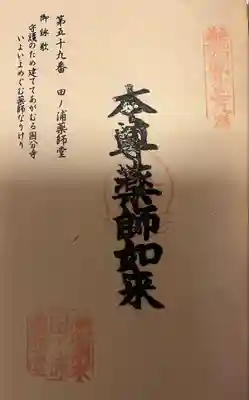 第五十九番　田ノ浦薬師堂
御詠歌
守護のため建ててあがむる国分寺
いよいよめぐむ薬師なりけり
本尊薬師如来